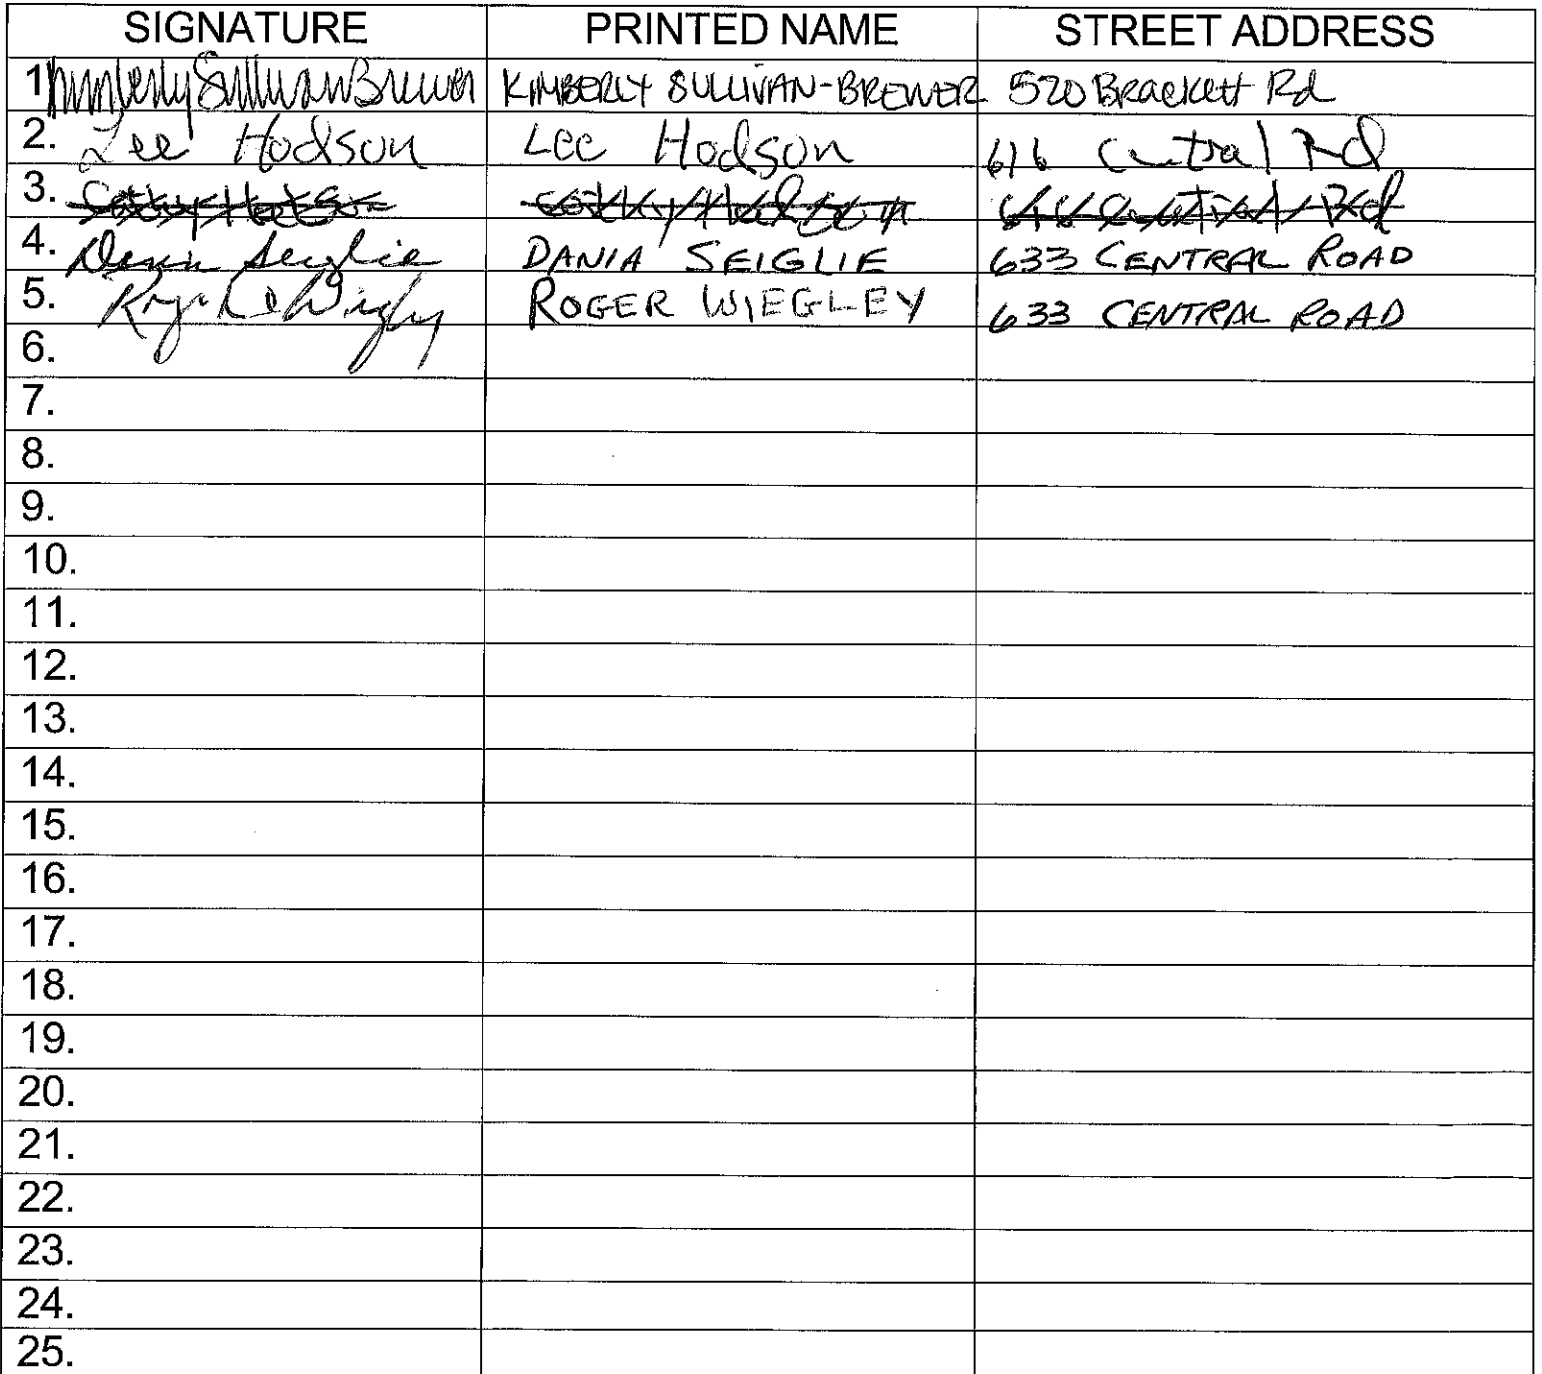 SIGNATURE PRINTED NAME STREET ADDRESS
1 Kimberly Sullivan Brewer KIMBERLY SULLIVAN-BREWER 520 Brackett Rd
2. Lee Hodson Lee Hodson 616 Central Rd
3. Hodson 616 Central Rd
4. Dania Seiglie DANIA SEIGLIE 633 CENTRAL ROAD
5. ROGER WIEGLEY 633 CENTRAL ROAD
6.
7.
8.
9.
10.
11.
12.
13.
14.
15.
16.
17.
18.
19.
20.
21.
22.
23.
24.
25.